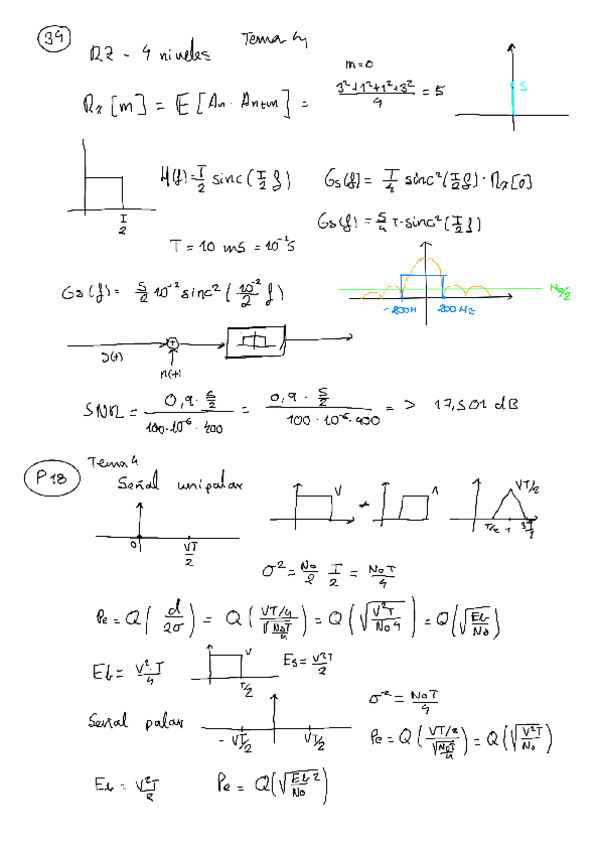 39
RZ - 4 niveles Tema 4
Rx[m] = E[An · An+m] =
m=0
3²+1²+1²+3² / 4 = 5
S
T/2
H(f) = T/2 sinc(T/2 f)
Gs(f) = T/4 sinc²(T/2 f) · Rx[0]
Gs(f) = 5/4 T · sinc²(T/2 f)
T = 10 ms = 10⁻² s
Gs(f) = 5/2 10⁻² sinc²(10⁻²/2 f)
No/2
-200H 200Hz
s(t) + n(t)
SNR = 0,9 · 5/2 / 100·10⁻⁶·400 = 0,9 · 5/2 / 100·10⁻⁶·400 => 17,501 dB
P18
Tema 4
Señal unipolar
V * 1 VT/2
T/2 T 3T/2
0 VT/2
σ² = No/2 T/2 = NoT/4
Pe = Q(d/2σ) = Q(VT/4 / √NoT/4) = Q(√V²T/No4) = Q(√Eb/No)
Eb = V²·T/4
V T/2
Es = V²T/2
Señal polar
-VT/2 VT/2
σ² = NoT/4
Pe = Q(VT/2 / √NoT/4) = Q(√V²T/No)
Eb = V²T/2
Pe = Q(√Eb2/No)